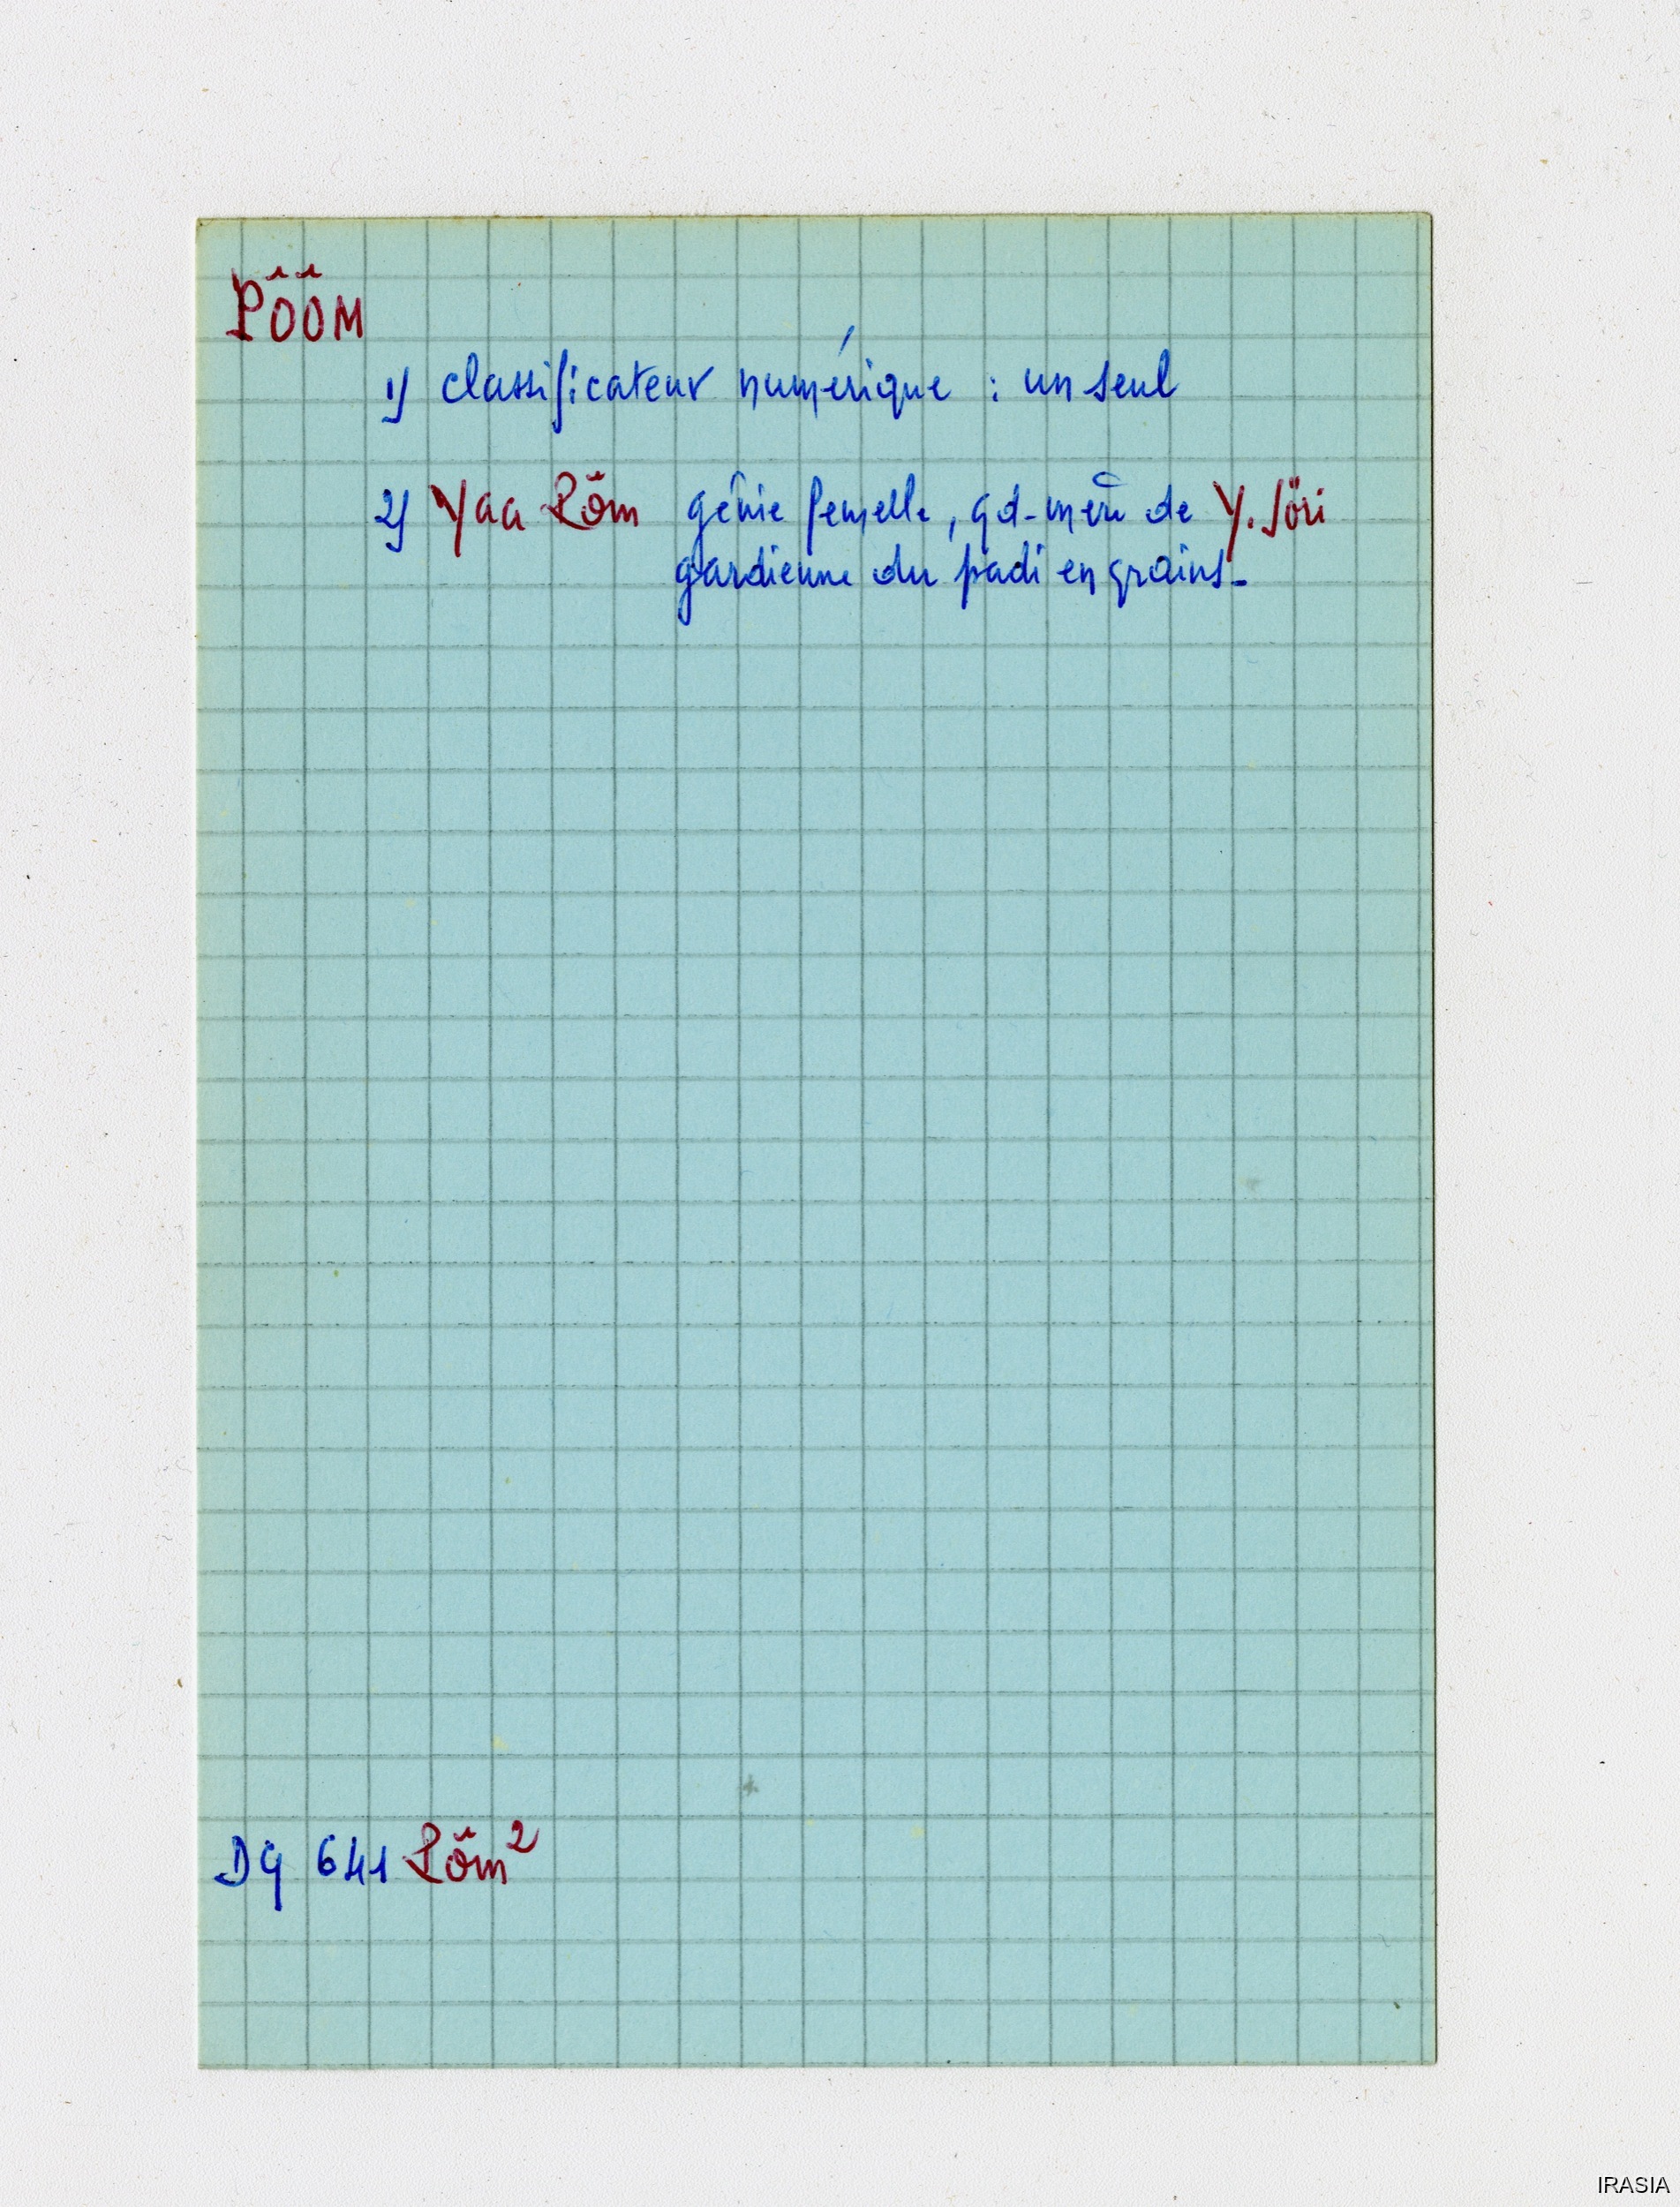 PÖÖM
1) classificateur numérique : un seul
2) Yaa Pöm génie femelle, gd-mère de Y. Söri
gardienne du padi en grains-
DG 641 Pöm²
IRASIA